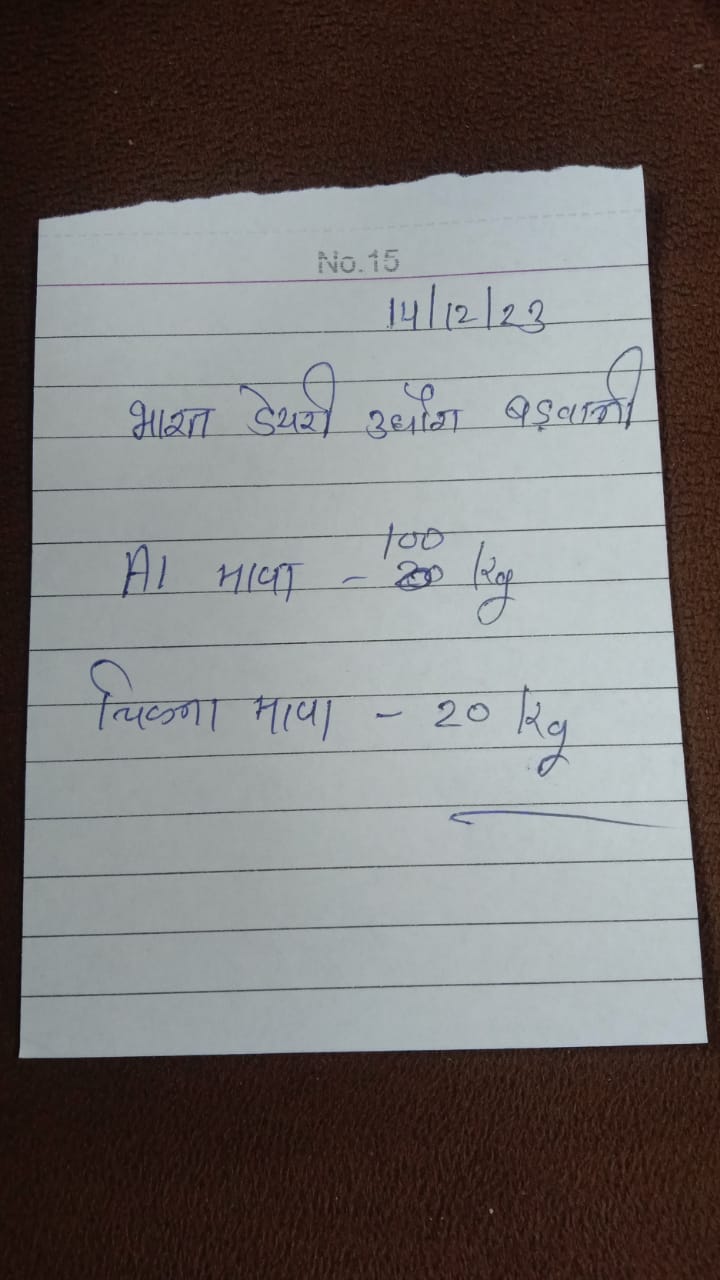 No. 15
14/12/23
भारत डेयरी उधोग बड़वानी
A1 मावा - 100 kg
चिकना मावा - 20 kg